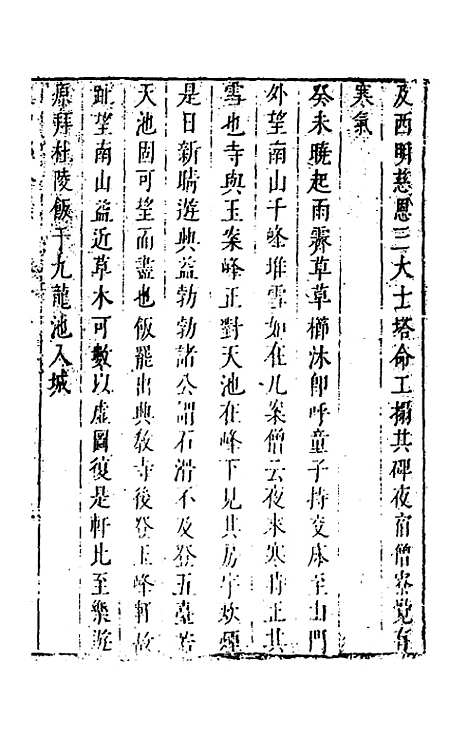 及西明慈恩三大士塔命工搨其碑夜宿僧寮覺有
寒氣
癸未曉起雨霽草草櫛沐即呼童子持交床至山門
外望南山千峰堆雪如在几案僧云夜來寒時正其
雪也寺與玉案峰正對天池在峰下見其房宇炊煙
是日新晴遊興益勃勃諸公謂石滑不及登五臺若
天池固可望而盡也飯罷出興教寺後登玉峰軒故
趾望南山益近草木可數以虛圖復是軒比至樂遊
原拜杜陵飯于九龍池入城